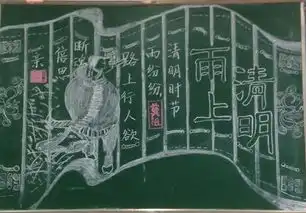 清明
雨上
清明时节
雨纷纷,
路上行人欲
断魂
思
亲